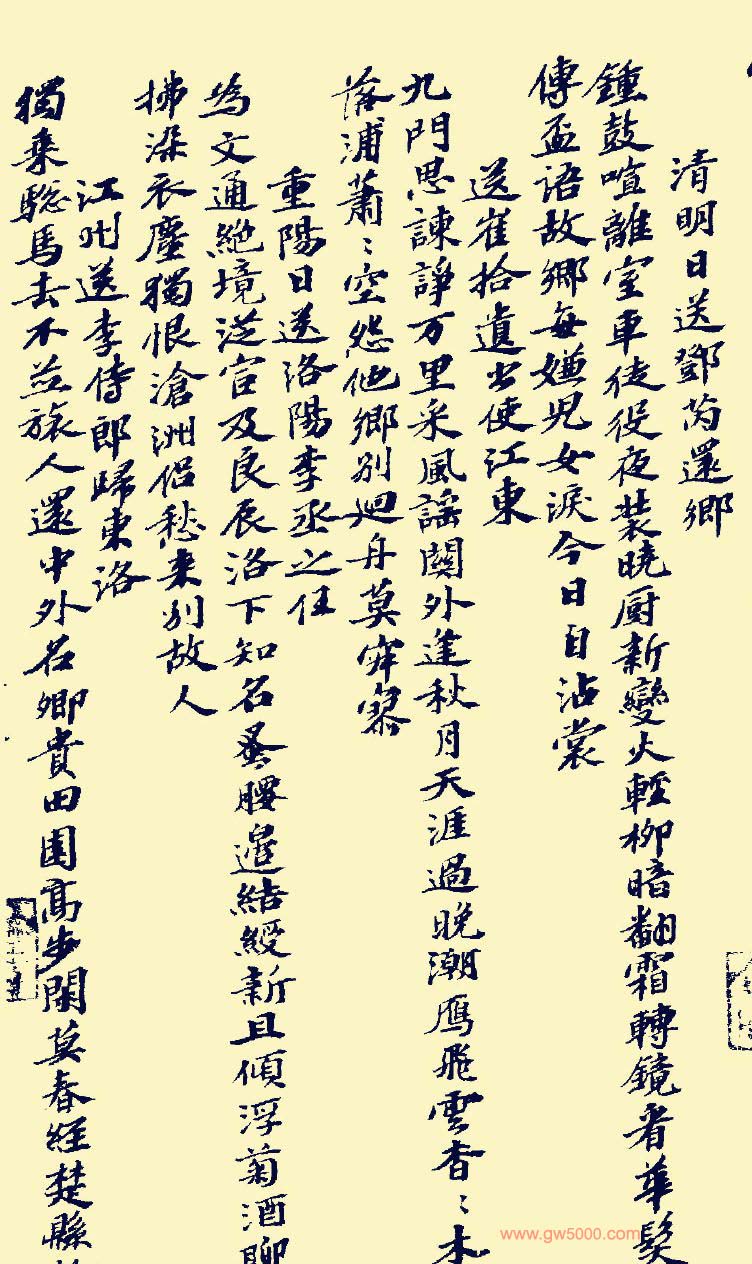 清明日送鄧芮還鄉
鍾鼓喧離室車徒役夜裝曉厨新變火輕柳暗翻霜轉鏡看華髮
傳盃語故鄉每嫌兒女淚今日自沾裳
送崔拾遺出使江東
九門思諫諍万里采風謠關外逢秋月天涯過晚潮鴈飛雲杳〻木
落浦蕭〻空怨他鄉別迴舟莫寂寥
重陽日送洛陽李丞之任
為文通絕境從官及良辰洛下知名蚤腰邊結綬新且傾浮菊酒聊
拂染衣塵獨恨滄洲侶愁來別故人
江州送李侍郎歸東洛
獨乘驄馬去不並旅人還中外名卿貴田園高步閑莫春經楚縣
www.gw5000.com